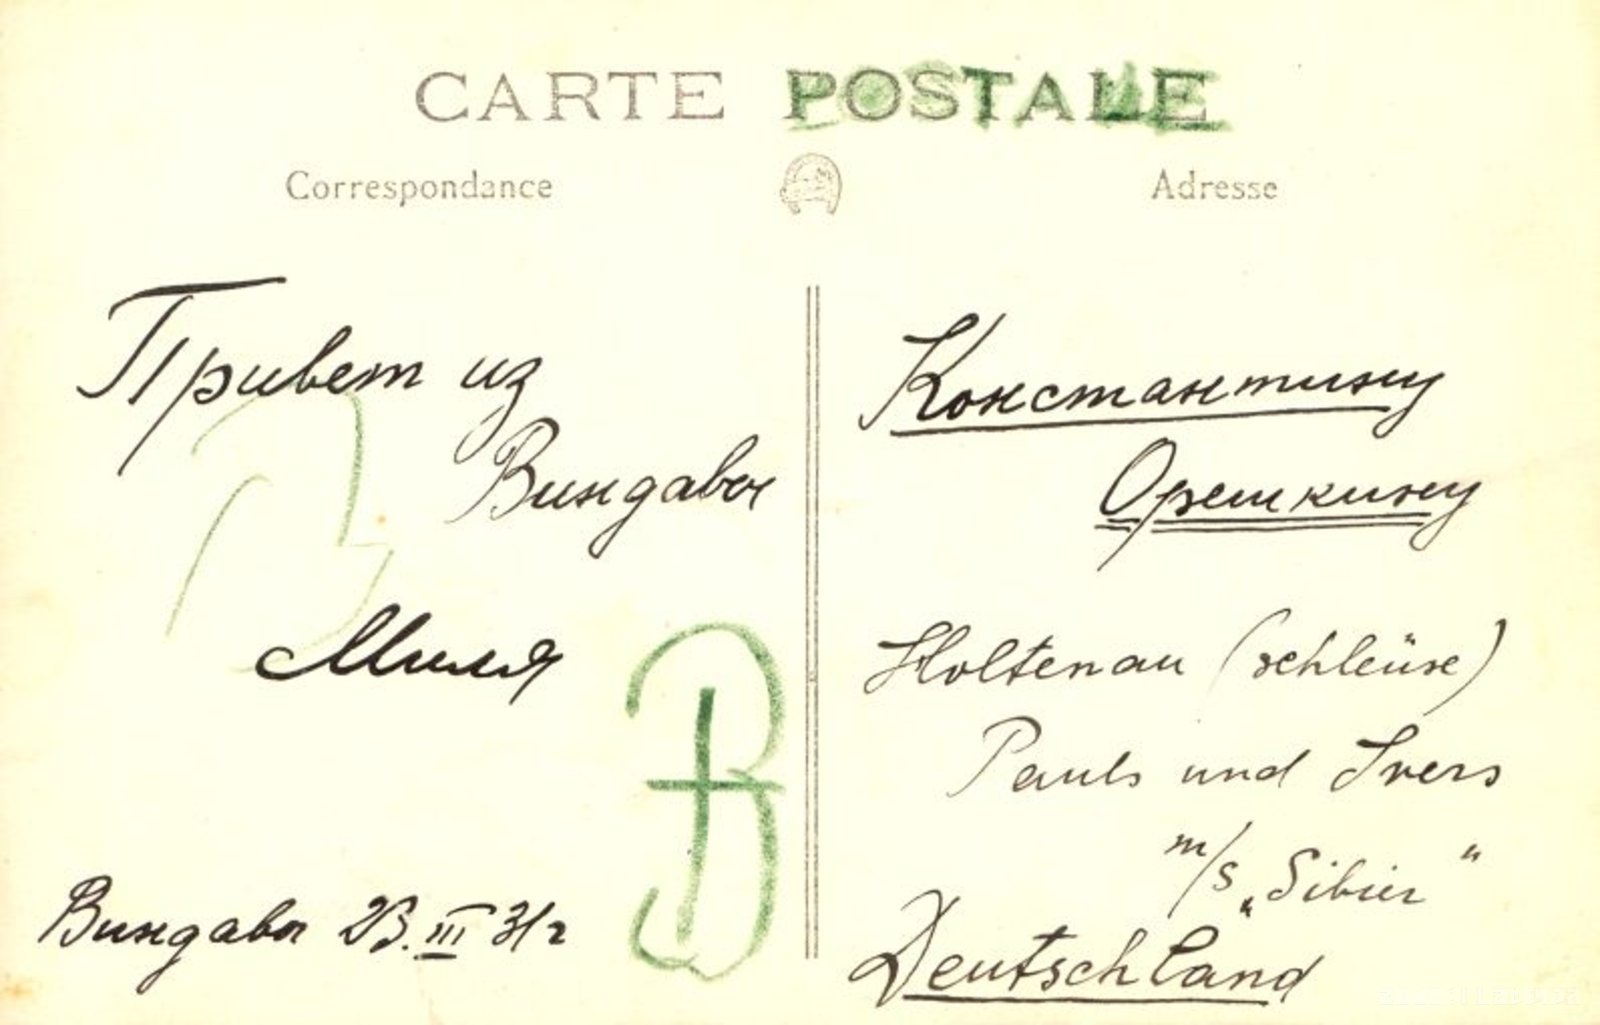 CARTE POSTALE
Correspondance
Adresse
Привет из
Виндавы
Миля
Виндава 23.III 31г
Константину
Орешкину
Holtenau (schleüse)
Pauls und Ivers
m/s „Sibier"
Deutschland